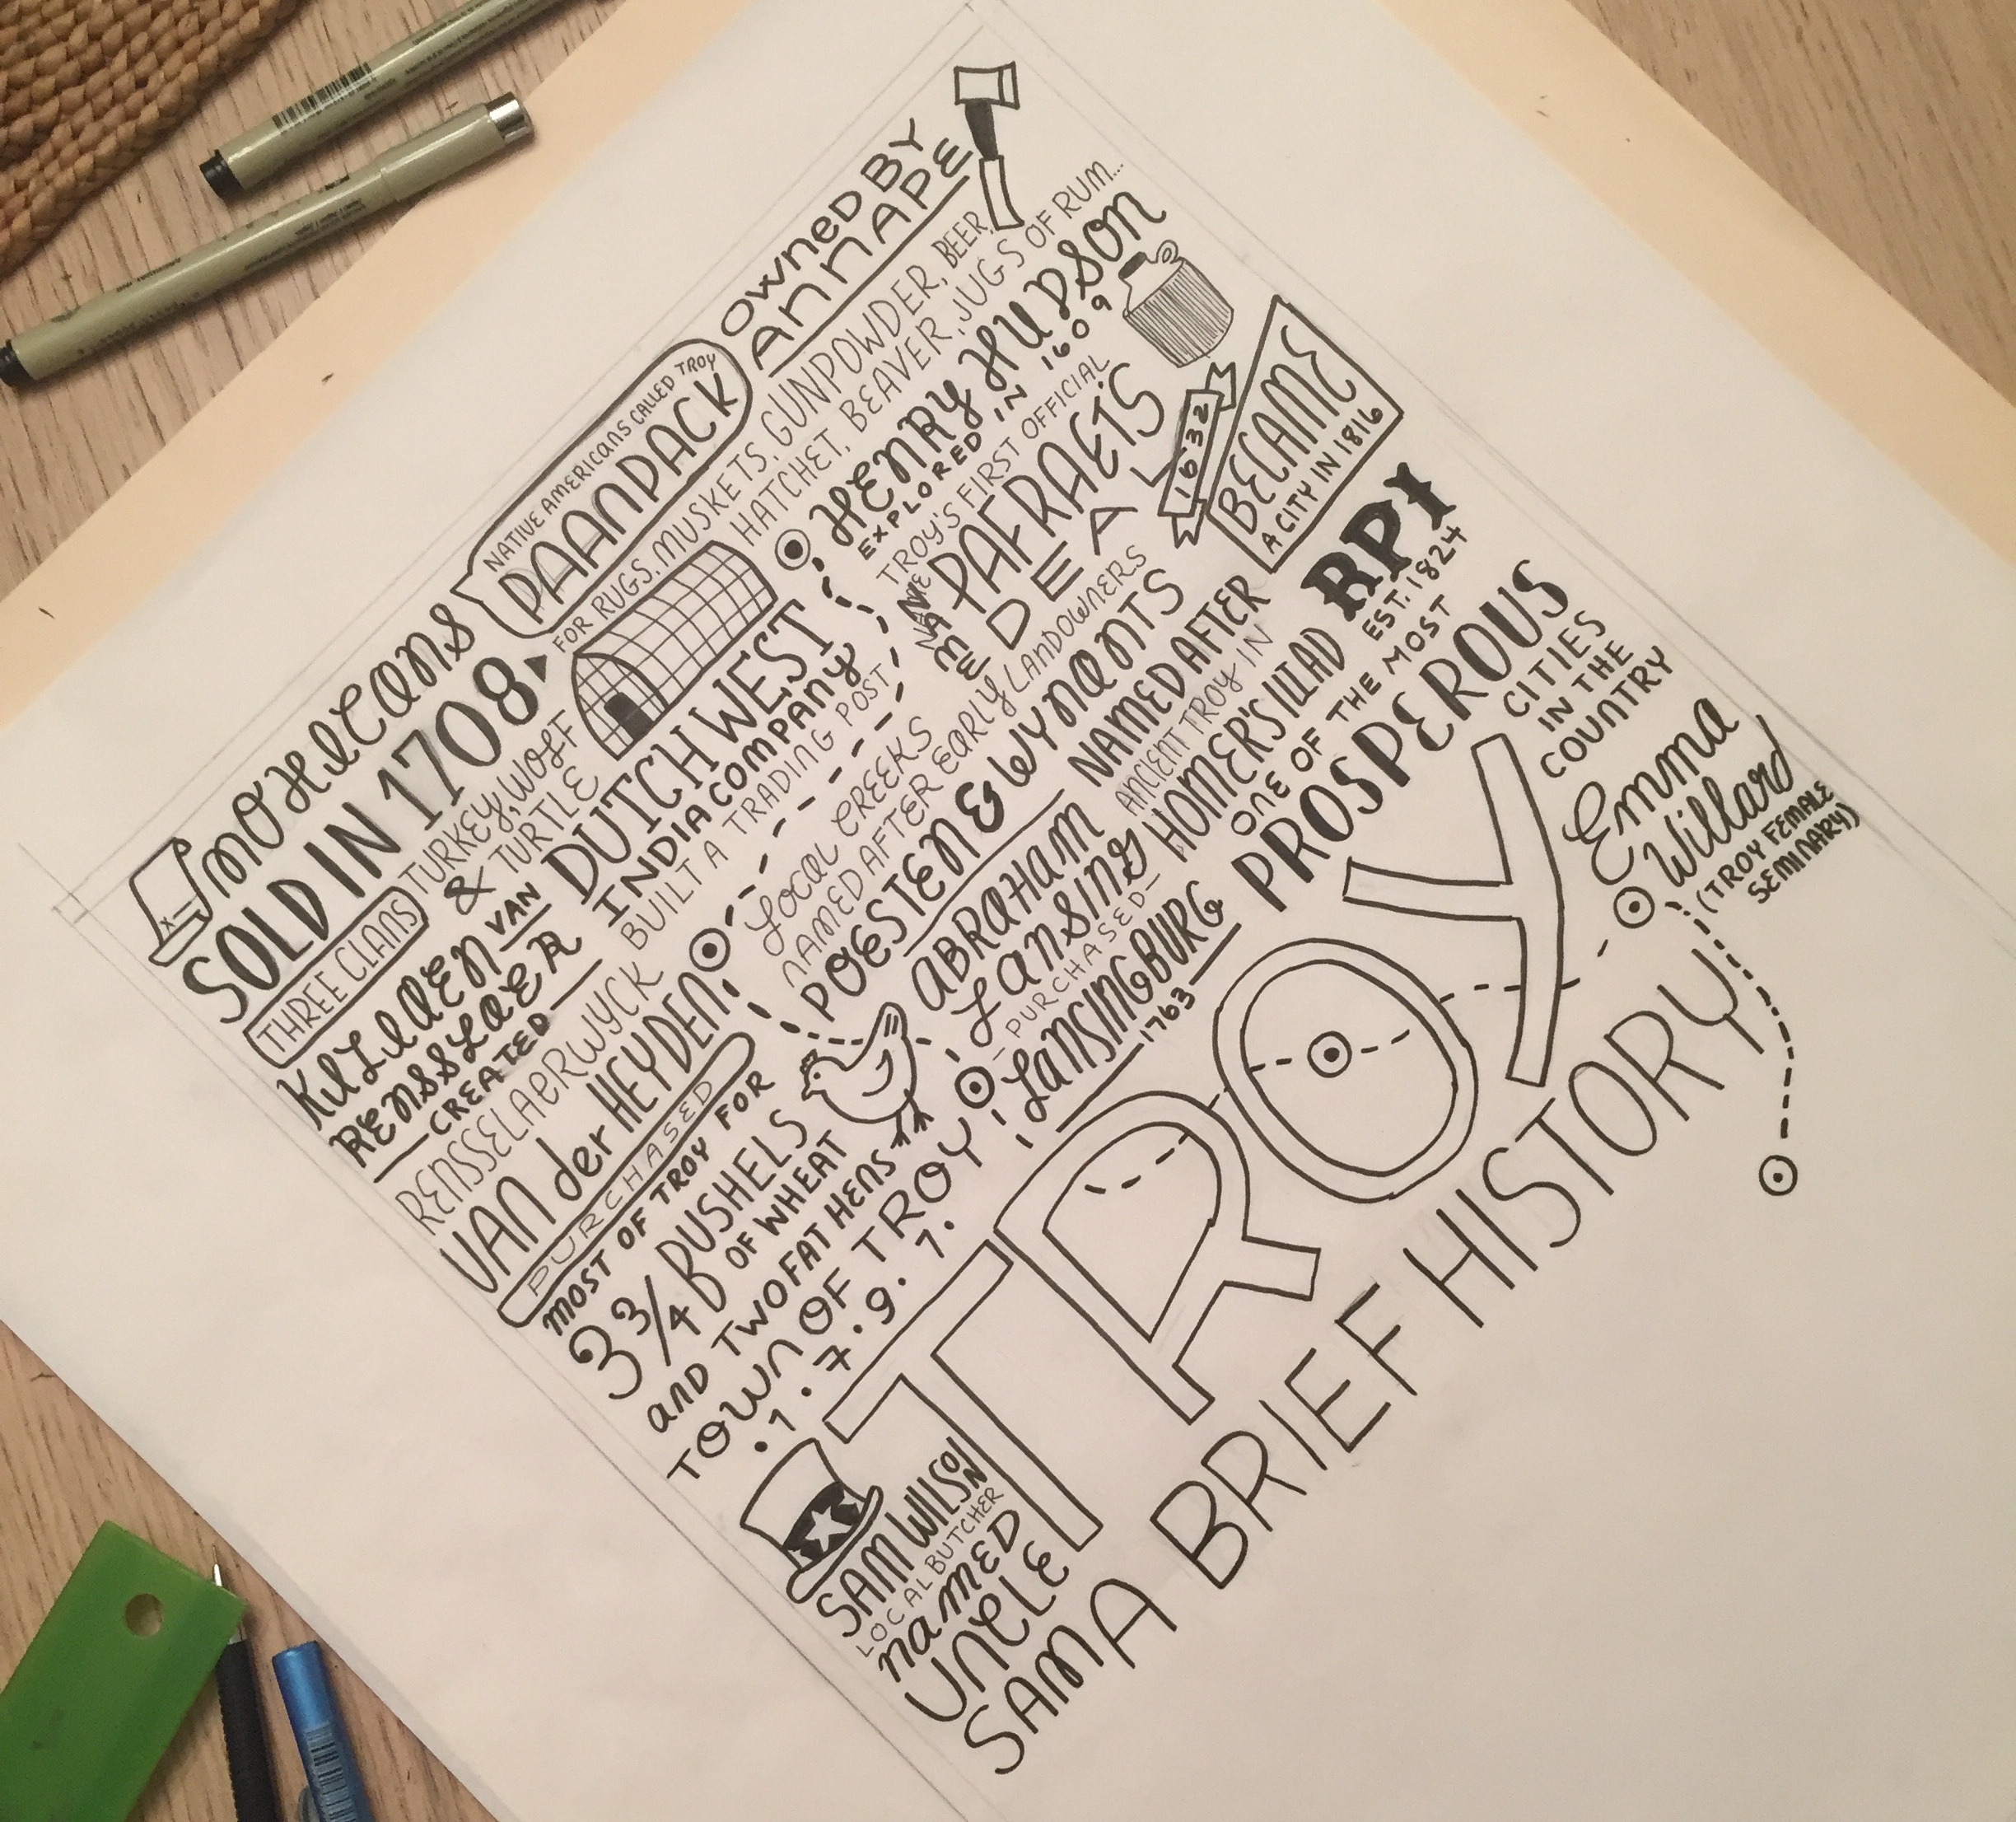 MOHICANS
SOLD IN 1708
THREE CLANS
TURKEY, WOLF
& TURTLE
NATIVE AMERICANS CALLED TROY
PAANPACK
OWNED BY
ANNAPE
FOR RUGS, MUSKETS, GUNPOWDER, BEER,
HATCHET, BEAVER, JUGS OF RUM...
HENRY HUDSON
EXPLORED IN 1609
KILIAEN VAN
RENSSLAER
CREATED
RENSSELAERWYCK
DUTCH WEST
INDIA COMPANY
BUILT A TRADING POST
TROY'S FIRST OFFICIAL
NAME
PAFRAETS
DEAL
1632
BECAME
A CITY IN 1816
LOCAL CREEKS
NAMED AFTER EARLY LANDOWNERS
POESTEN & WYNANTS
VAN der HEYDEN
PURCHASED
MOST OF TROY FOR
3 3/4 BUSHELS
OF WHEAT
AND TWO FAT HENS
ABRAHAM
LANSING
-PURCHASED-
LANSINGBURG
1763
NAMED AFTER
ANCIENT TROY IN
HOMER'S ILLIAD
RPI
EST. 1824
ONE OF THE MOST
PROSPEROUS
CITIES
IN THE
COUNTRY
TOWN OF TROY
.1.7.9.1.
Emma
Willard
(TROY FEMALE
SEMINARY)
SAM WILSON
LOCAL BUTCHER
NAMED
UNCLE
SAM
TROY
A BRIEF HISTORY